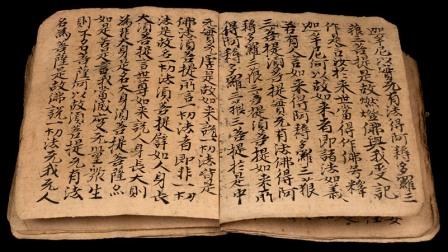 迦牟尼以實无有法得阿耨多羅三
藐三菩提是故燃燈佛與我受記
作是言汝於來世當得作佛号釋
迦牟尼何以故如來者即諸法如義
若有人言如來得阿耨多羅三藐
三菩提須菩提實无有法佛得阿
耨多羅三藐三菩提須菩提如來所
得阿耨多羅三藐三菩提於是中
无實无虛是故如來說一切法皆是
佛法須菩提所言一切法者即非一切
法是故名一切法須菩提譬如人身長
大須菩提言世尊如來說人身長大則
為非大身是名大身須菩提菩薩亦
如是若作是言我當滅度无量眾生
則不名菩薩何以故須菩提无有法
名為菩薩是故佛說一切法无我无人